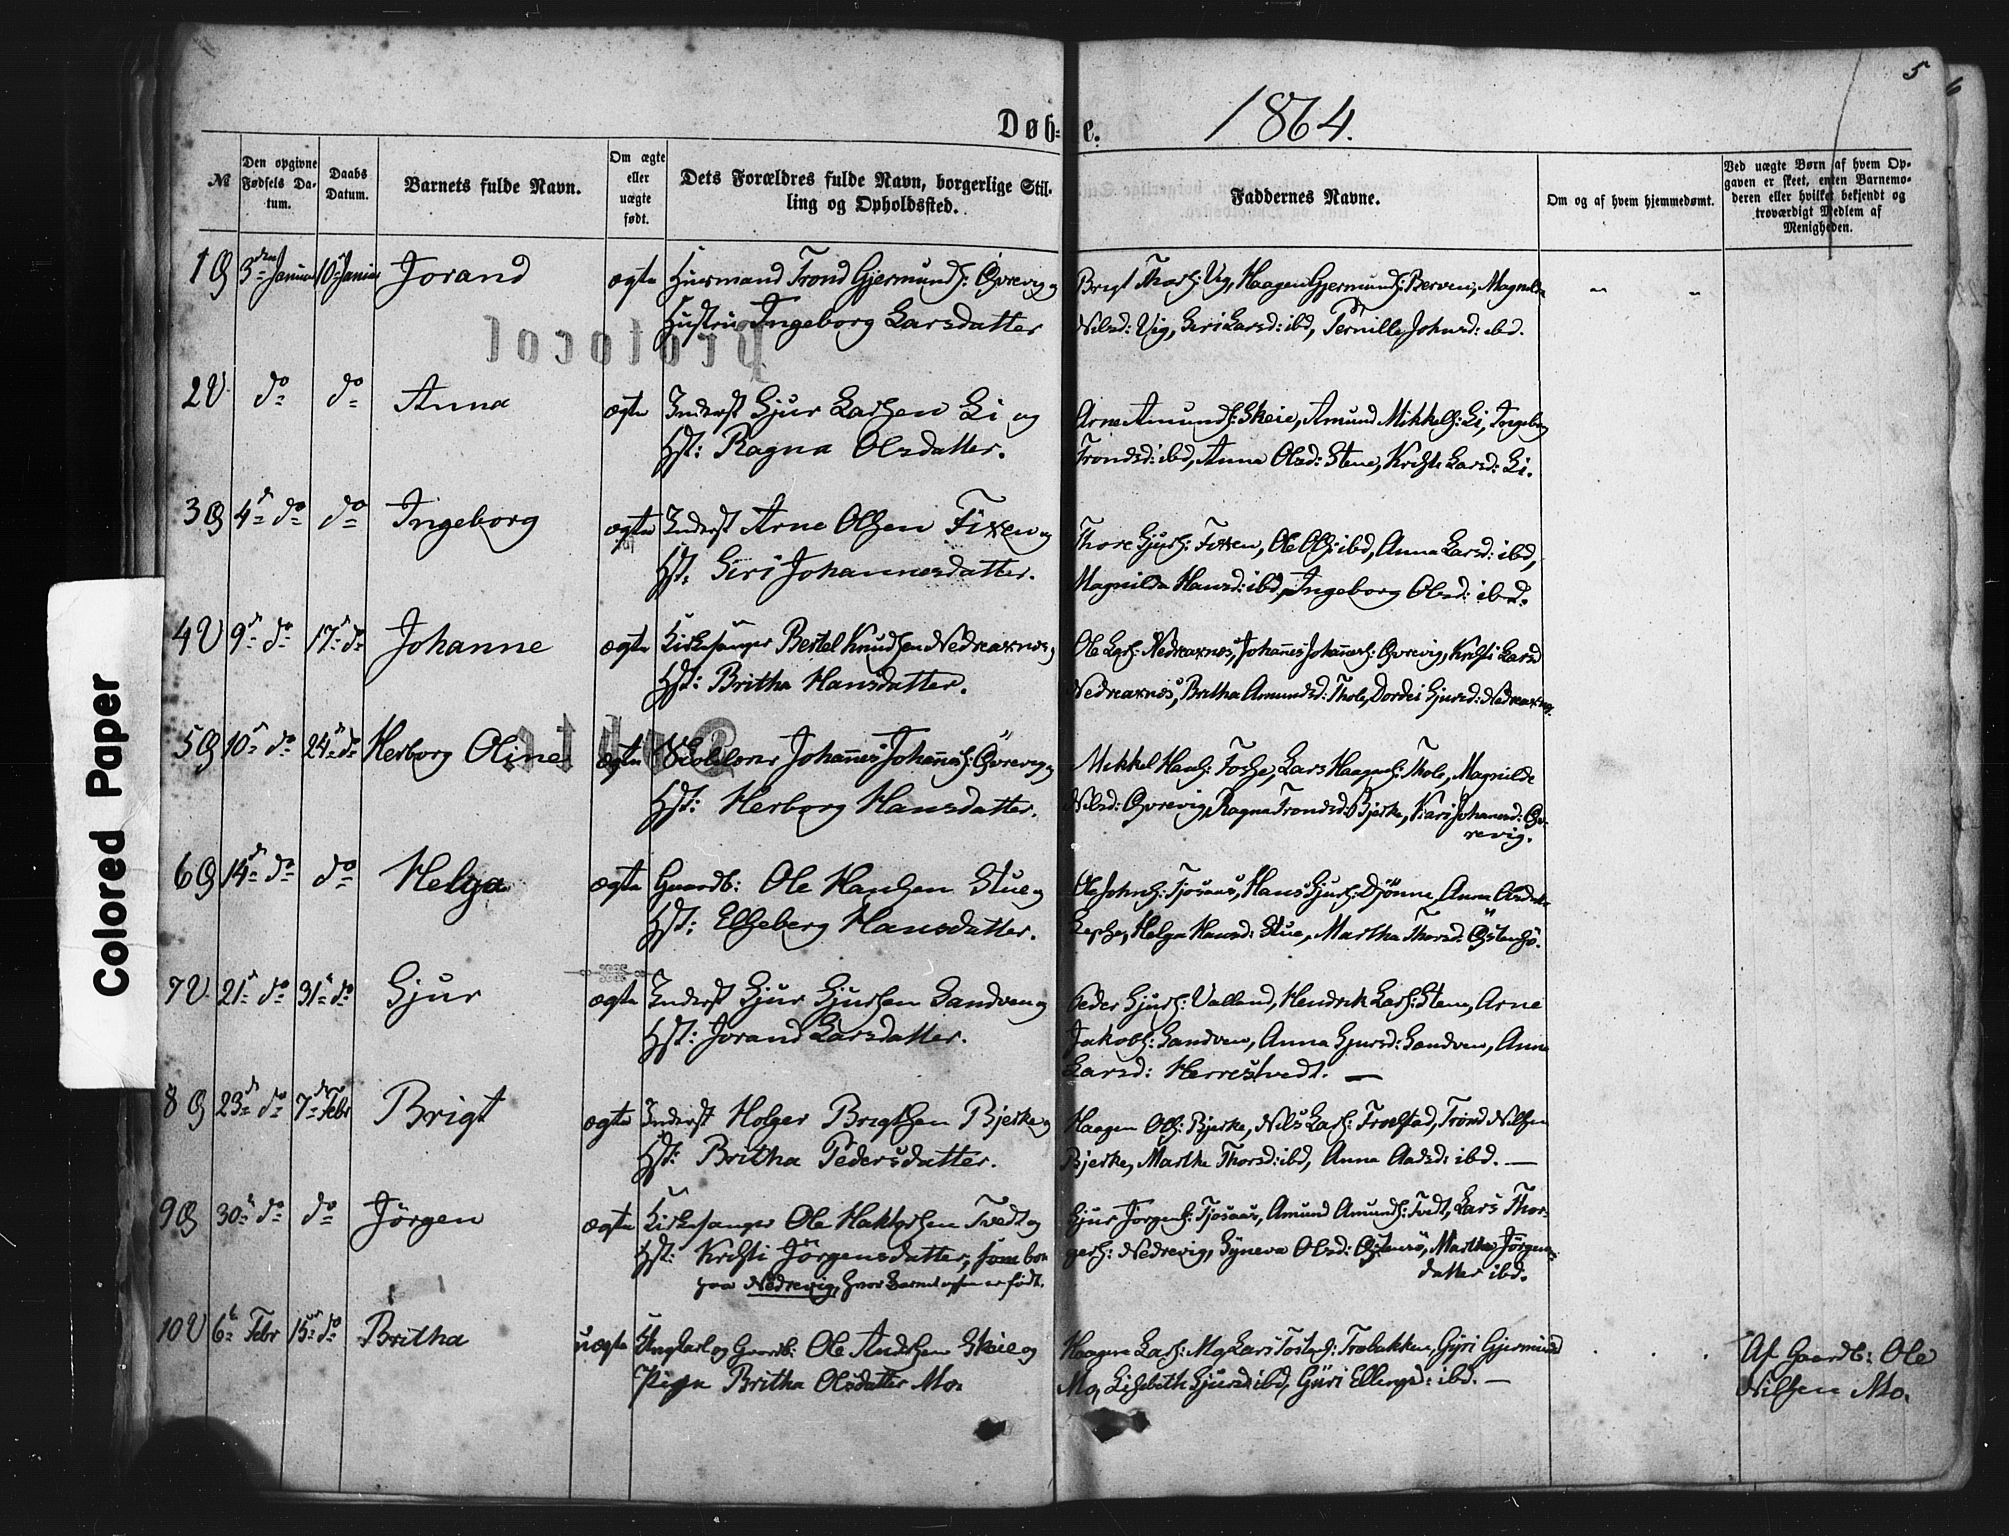 5
6
Døb=e. 1864.
№
Den opgivne Fødsels Da-tum.
Daabs Datum.
Barnets fulde Navn.
Om ægte eller uægte født.
Dets Forældres fulde Navn, borgerlige Stil-
ling og Opholdssted.
Faddernes Navne.
Om og af hvem hjemmedømt.
Ved uægte Børn af hvem Op-
gaven er skeet, enten Barnemo-
deren eller hvilket bekjendt og
troværdigt Medlem af
Menigheden.
1 Ø 3die Januar 10de Januar Jorand ægte Huusmand Trond Gjermunds: Øvrevig og Brigt Thors: Vig, Haagen Gjermunds: Berven, Magnilda
Hustru Ingeborg Larsdatter Nilsd: Vig, Siri Larsd: ibd, Pernille Johnsd: ibd.
protocol
2 V. do do Anna ægte Inderst Gjur Larsen Li og Arne Amunds: Skeie, Amund Mikkels: Li, Ingeborg
Hst: Ragna Olsdatter. Trondsd: ibd, Anna Olsd: Stene, Kristi Larsd: Li.
3 Ø 4de do do Ingeborg ægte Inderst Arne Olsen Fixen og Thore Gjurs: Fixen, Ole Ols: ibd, Anna Larsd: ibd,
Hst: Siri Johannesdatter. Magnilda Hansd: ibd, Ingeborg Olsd: ibd.
4 V 9de do 17de do Johanne ægte Kirkesanger Bertel Knudsen Nedreaxnes og Ole Lars: Nedreaxnes, Johannes Johannes: Øvrevig, Kristi Larsd
Hst: Britha Hansdatter. Nedreaxnes, Britha Amundsd: Thole, Dordei Gjursd: Nedreaxnes.
5 Ø 10de do 24de do Herborg Oline ægte Skolelærer Johannes Johannes: Øvrevig og Mikkel Hans: Tosse, Lars Haagens: Thole, Magnilde
Hst: Herborg Hansdatter. Nilsd: Øvrevig, Ragna Trondsd: Bjerke, Kari Johannesd: Øv-
revig.
6 Ø 14de do do Helga ægte Gaardb: Ole Hansen Stue og Ole Johns: Tjosaas, Hans Gjurs: Djønne, Anna
Hst: Elseberg Hansdatter. Helga Hansd: Stue, Martha Thorsd: Østensø.
7 V. 21de do 31te do Gjur ægte Inderst Gjur Gjursen Sandven og Peder Gjurs: Valland, Hendrik Lars: Stene, Arne
Hst: Jorand Larsdatter. Jakobs: Sandven, Anna Gjursd: Sandven, Anna
Larsd: Herrestvedt. —
8 Ø 23de do 7de Febr Brigt ægte Inderst Holger Brigtsen Bjerke og Haagen Ols: Bjerke, Nils Lars: Froestad, Trond Nilsen
Hst: Britha Pedersdatter. Bjerke, Martha Thorsd: ibd, Anna Aadsd: ibd. —
9 Ø 30te do do Jörgen ægte Kirkesanger Ole Haktorsen Tvedt og Gjur Jörgens: Tjosaas, Amund Amunds: Tvedt, Lars Thor-
Hst: Kristi Jörgensdatter, som bor gers: Nedrevig, Synneva Olsd: Østensø, Martha Jörgens-
paa Nedrevig, hvor Barnet ogsaa er født. datter ibd.
10 V 6te Febr 15de do Britha uægte Ungkarl og Gaardb: Ole Andersen Skeie og Haagen Lars: Mo, Lars Tostens: Trobakken, Gyri Gjermundsd Af Gaardb: Ole
Pige Britha Olsdatter Mo. Mo, Lisbeth Gjursd: ibd, Guri Ellingsd: ibd. — Nilsen Mo.
Colored Paper